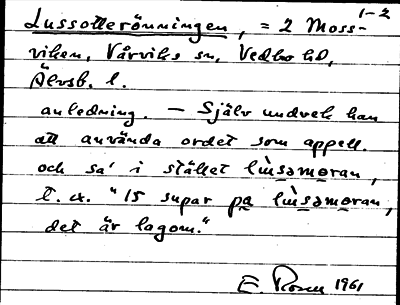 1-2
Lussotterönningen, = 2 Moss-
viken, Vårviks sn, Vedbo hd,
Älvsb. l.
anledning. — Själv undvek han
att använda ordet som appell.
och sa' i stället lùsəmoran,
t. ex. "15 supar pa lùsəmoran,
det är lagom."
E Rosen 1961